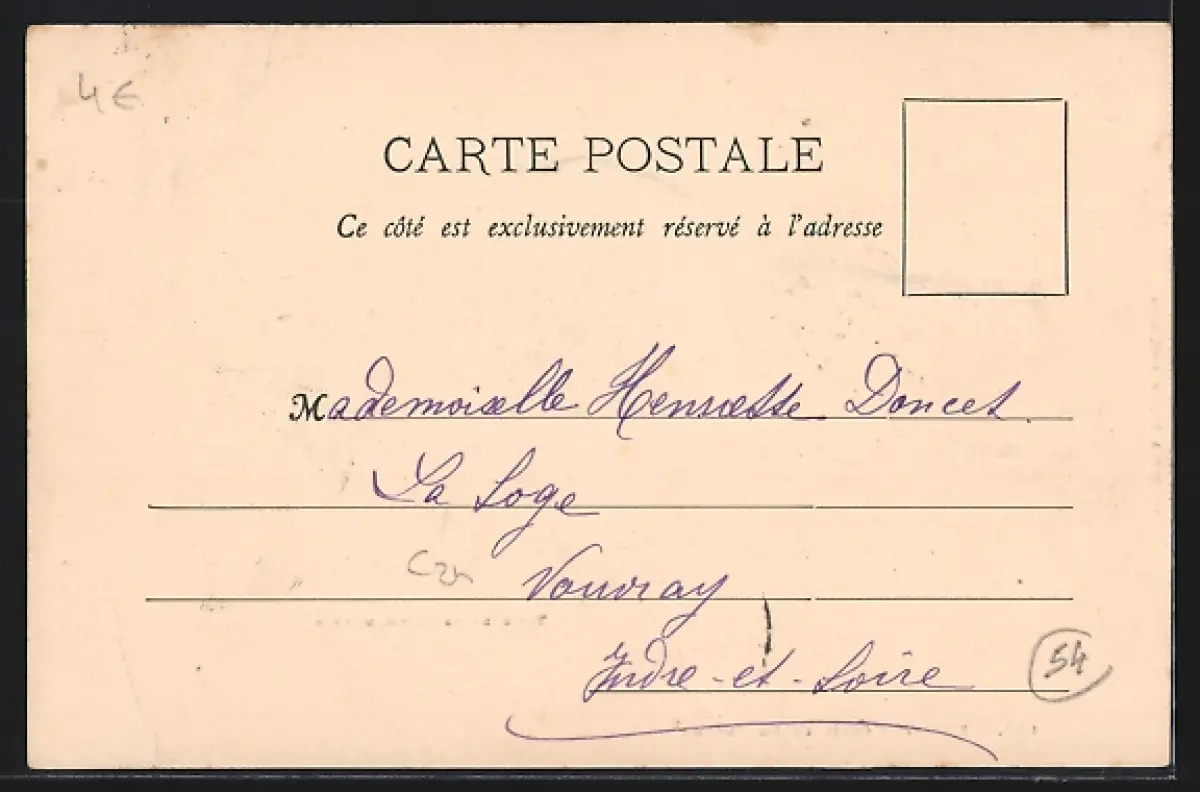 4€
CARTE POSTALE
Ce côté est exclusivement réservé à l'adresse
Mademoiselle Henriette Doucet
La Loge
Vouvray
Indre-et-Loire
54